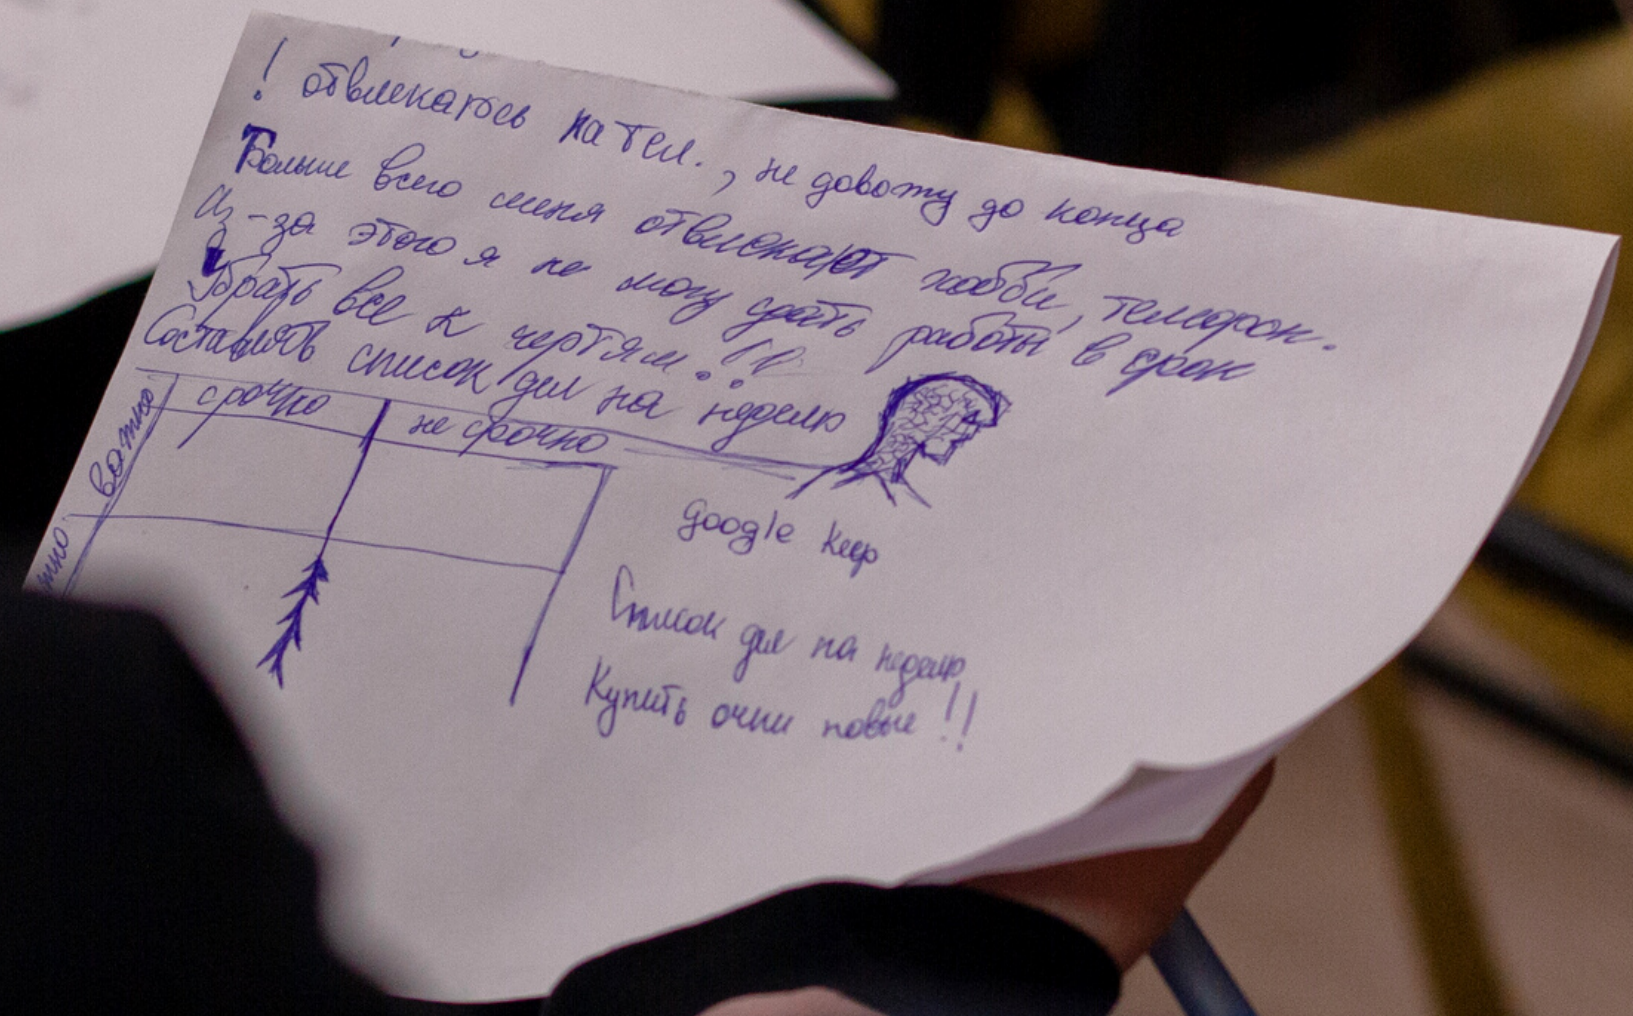 ! отвлекаюсь на тел., не довожу до конца
Больше всего меня отвлекают хобби, телефон.
Из-за этого я не могу сдать работы в срок
Убрать все к чертям!!!
Составлять список дел на неделю
срочно не срочно
важно
google keep
Список дел на неделю
Купить очки новые!!